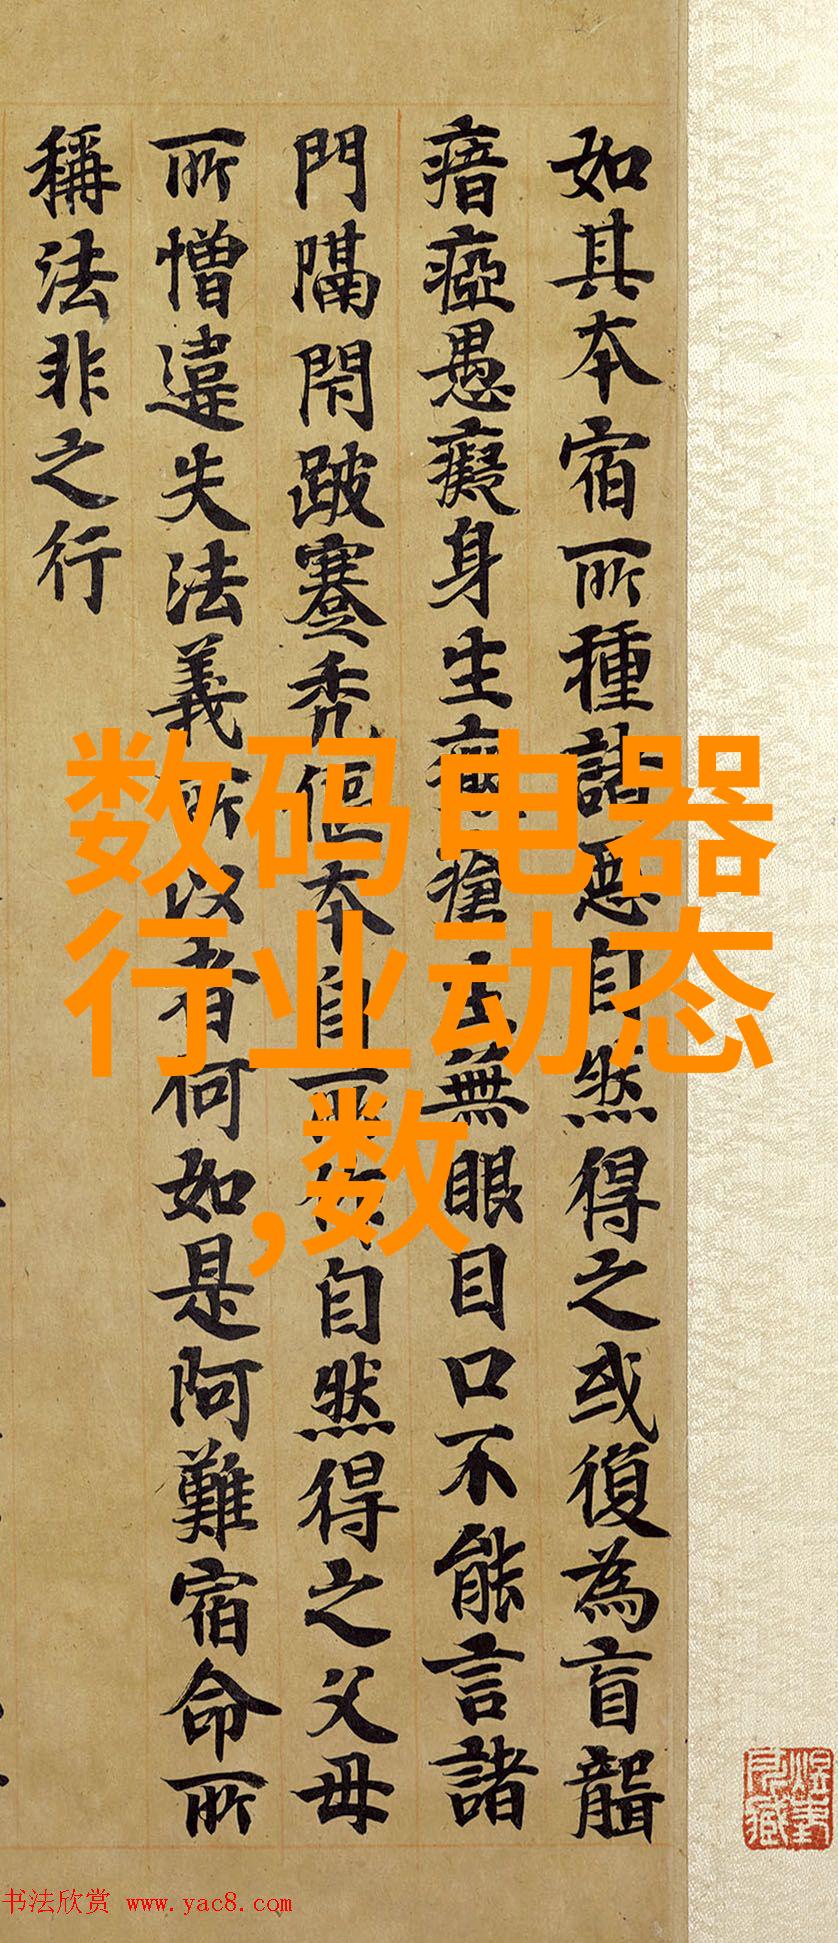 如其本宿所種諸惡自然得之或復為盲聾
瘖瘂愚癡身生瘡無眼目口不能言諸
門隔閇跛蹇禿傴本自所作自然得之父母
所憎違失法義所以者何如是阿難宿命所
稱法非之行
数码电器
行业动态
,数
书法欣赏 www.yac8.com